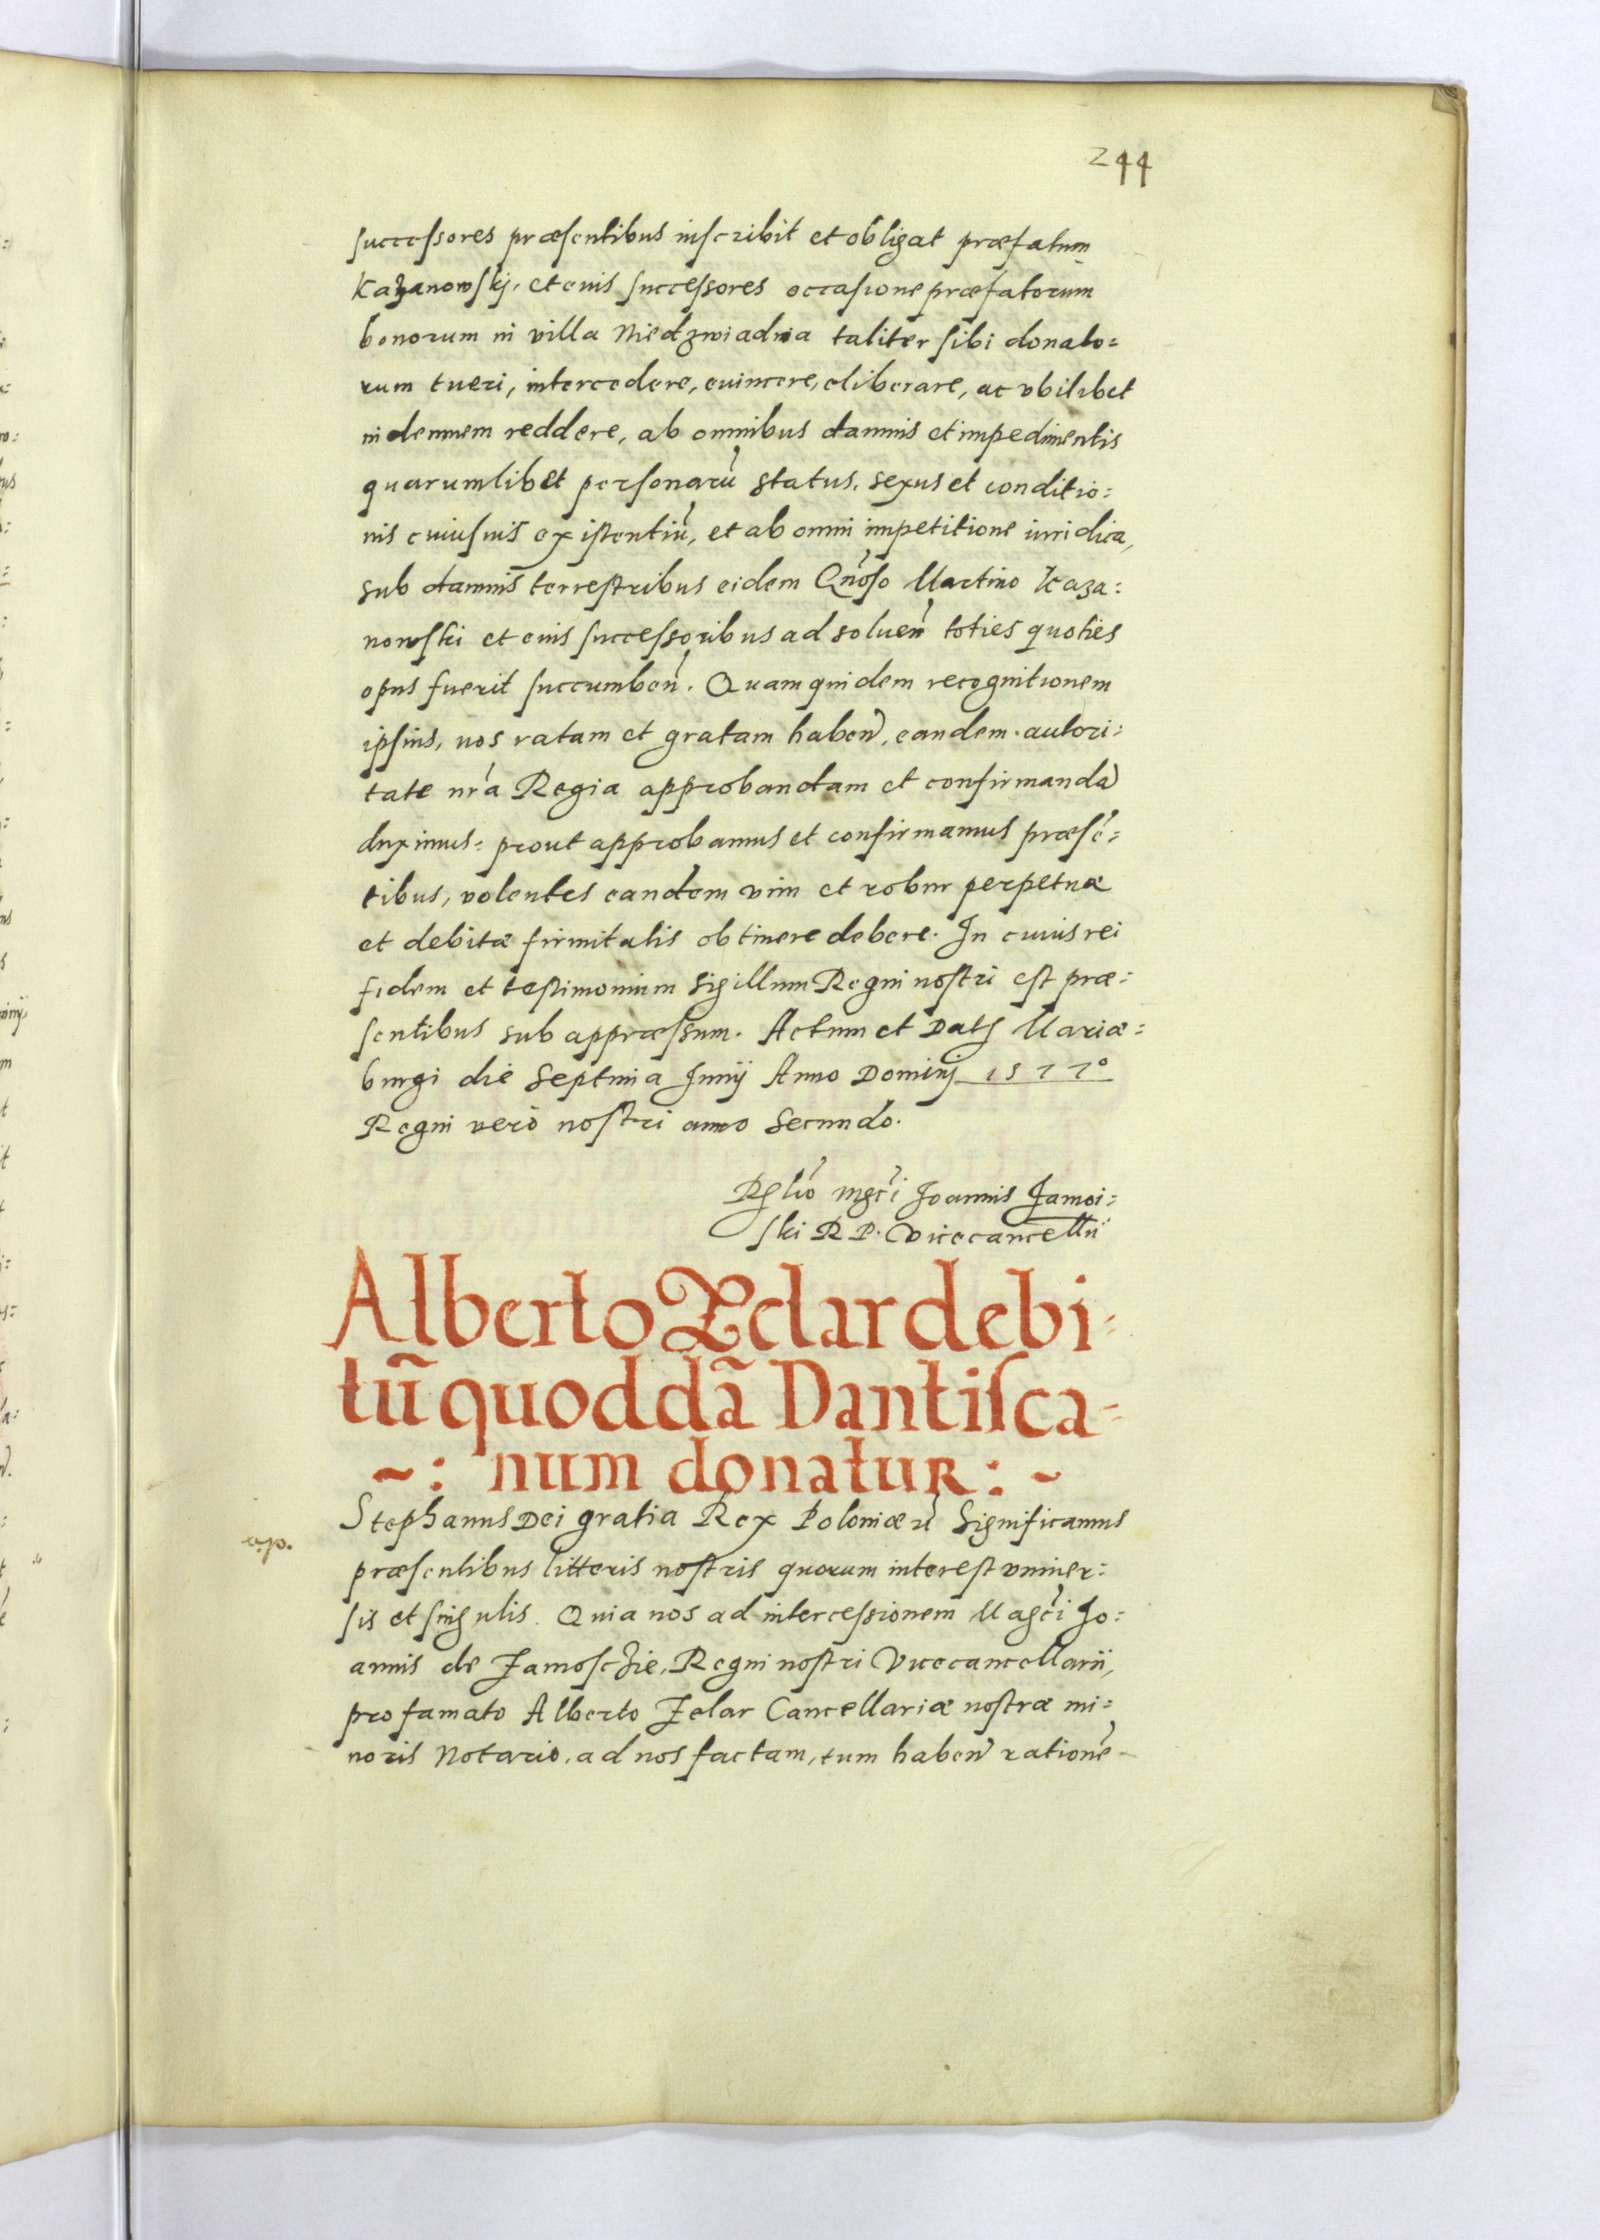 244
successores præsentibus inscribit et obligat præfatum
Kazanowskj, et euis successores occasione præfatorum
bonorum in villa Niedzwiadna taliter sibi donato=
rum tueri, intercedere, euincere, eliberare, ac vbilibet
indemnem reddere, ab omnibus damnis et impedimentis
quarumlibet personarũ status, sexus et conditio=
nis cuiusuis existentiũ, et ab omni impetitione iuridica,
sub damnis terrestribus eidem Gnõso Martino Kaza=
nowski et euis successoribus ad soluen̄ toties quoties
opus fuerit succumben̄. Quam quidem recognitionem
ipsius, nos ratam et gratam haben̄, eandem autori=
tate nrã Regia approbandam et confirmandã
duximus: prout approbamus et confirmamus præsẽ=
tibus, volentes eandem vim et robur perpetuæ
et debitæ firmitatis obtinere debere. In cuius rei
fidem et testimonium Sigillum Regni nostri est præ=
sentibus subappræssum. Actum et Datʒ Mariæ=
burgi die Septima Junij Anno Dominj 1577º
Regni verò nostri anno Secundo.
Rełło mgcĩ Joannis Zamoi=
ski R P. Vicecancellrii
Alberto Zelar debi=
tũ quoddã Dantisca=
~: num donatur: ~
Stephanus Dei gratia Rex Poloniæ ꝛc̃ Significamus
præsentibus litteris nostris quorum interest vniuer=
sis et singulis. Quia nos ad intercessionem Magcĩ Jo=
annis de Zamosczie, Regni nostri Vicecancellarii,
pro famato Alberto Zelar Cancellariæ nostræ mi=
noris Notario, ad nos factam, tum haben̄ rationẽ